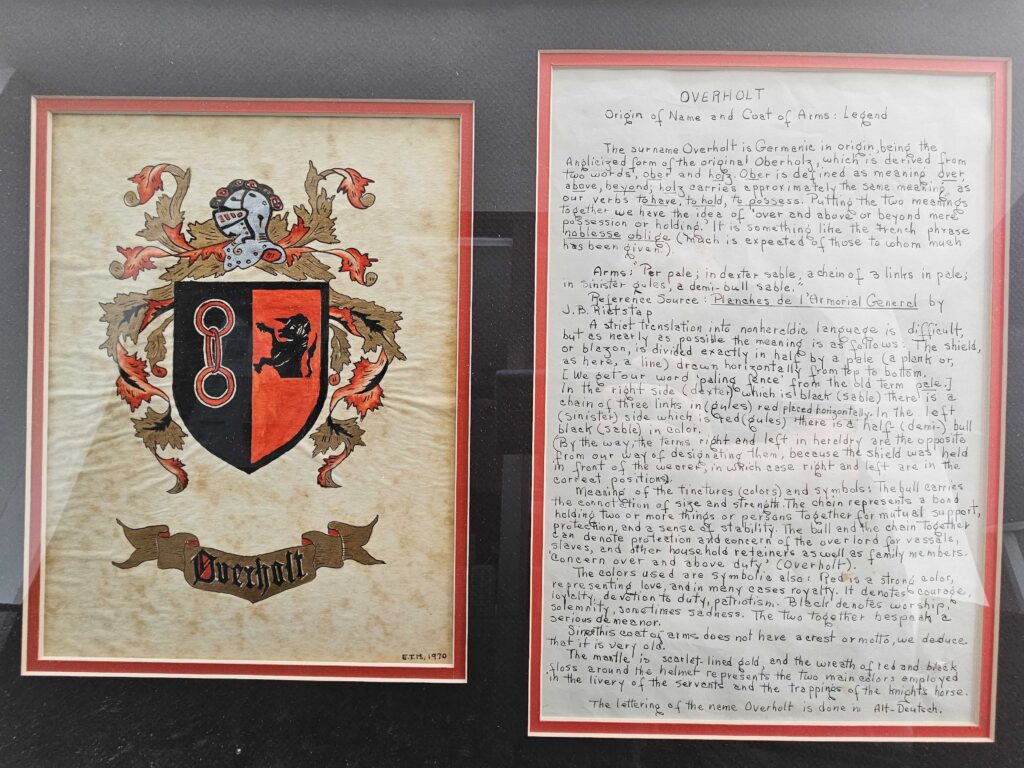 Overholt
E.T.M., 1970
OVERHOLT
Origin of Name and Coat of Arms: Legend
The surname Overholt is Germanic in origin, being the
Anglicized form of the original Oberholz, which is derived from
two words, ober and holz. Ober is defined as meaning over,
above, beyond; holz carries approximately the same meaning, as
our verbs to have, to hold, to possess. Putting the two meanings
together we have the idea of 'over and above or beyond mere
possession or holding.' It is something like the French phrase
noblesse oblige (much is expected of those to whom much
has been given.)
Arms: "Per pale; in dexter sable, a chain of 3 links in pale;
in sinister gules, a demi-bull sable."
Reference Source: Planches de l'Armorial General by
J.B. Rietstap
A strict translation into nonheraldic language is difficult,
but as nearly as possible the meaning is as follows: The shield,
or blazon, is divided exactly in half by a pale (a plank or,
as here, a line) drawn horizontally from top to bottom.
[We get our word 'paling fence' from the old term pale.]
In the right side (dexter) which is black (sable) there is a
chain of three links in (gules) red placed horizontally. In the left
(sinister) side which is red (gules) there is a half (demi-) bull
black (sable) in color.
(By the way, the terms right and left in heraldry are the opposite
from our way of designating them, because the shield was held
in front of the wearer, in which case right and left are in the
correct positions).
Meaning of the tinctures (colors) and symbols: The bull carries
the connotation of size and strength. The chain represents a bond
holding two or more things or persons together for mutual support,
protection, and a sense of stability. The bull and the chain together
can denote protection and concern of the overlord for vassals,
slaves, and other household retainers as well as family members.
'Concern over and above duty' (Overholt).
The colors used are symbolic also: Red is a strong color,
representing love, and in many cases royalty. It denotes courage,
loyalty, devotion to duty, patriotism. Black denotes worship,
solemnity, sometimes sadness. The two together bespeak a
serious demeanor.
Since this coat of arms does not have a crest or motto, we deduce
that it is very old.
The mantle is scarlet lined gold, and the wreath of red and black
floss around the helmet represents the two main colors employed
in the livery of the servants and the trappings of the knights horse.
The lettering of the name Overholt is done in Alt-Deutsch.